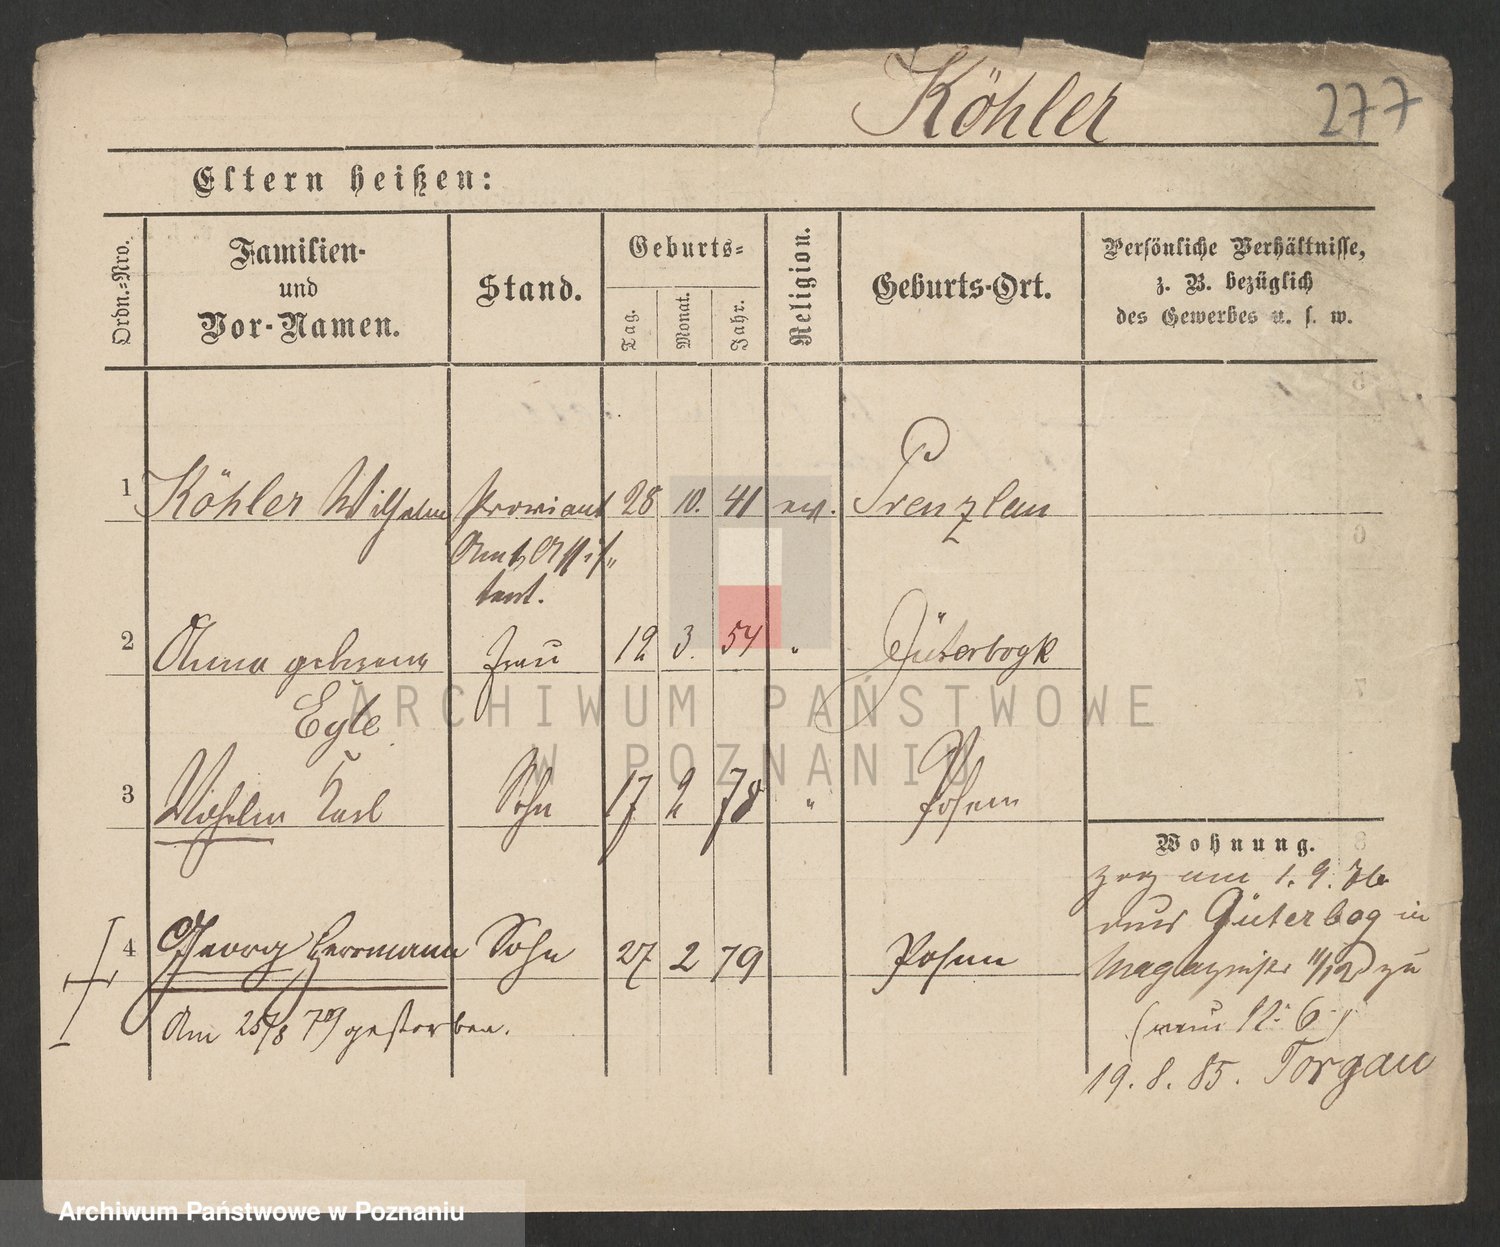 Köhler 277
Eltern heißen:
Ordn.-Nro.
Familien- und Vor-Namen.
Stand.
Geburts-
Tag.
Monat.
Jahr.
Religion.
Geburts-Ort.
Persönliche Verhältnisse,
z. B. bezüglich
des Gewerbes u. s. w.
1 Köhler Wilhelm Proviant 28 10. 41 ev. Prenzlau
Amts Assis„
tent.
2 Anna geborene Frau 12 3. 54 " Jüterbogk
Eyle
3 Wilhelm Karl Sohn 17 2 78 " Posen
Wohnung.
zog am 1. 9. 76
aus Güterbog in
Magazinstr zu
4 Georg Herrmann Sohn 27 2 79 Posen
Am 25/8 79 gestorben.
19. 8. 85. Torgau
ARCHIWUM PAŃSTWOWE
W POZNANIU
Archiwum Państwowe w Poznaniu